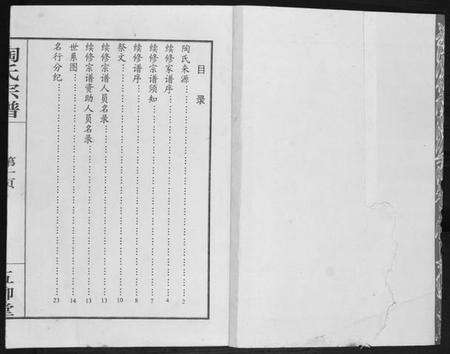 目录
陶氏来源……2
续修家谱序……4
续修宗谱须知……7
续修谱序……8
祭文……10
续修宗谱人员名录……13
续修宗谱资助人员名录……13
世系图……14
名行分纪……23
陶氏宗谱
第一页
五柳堂